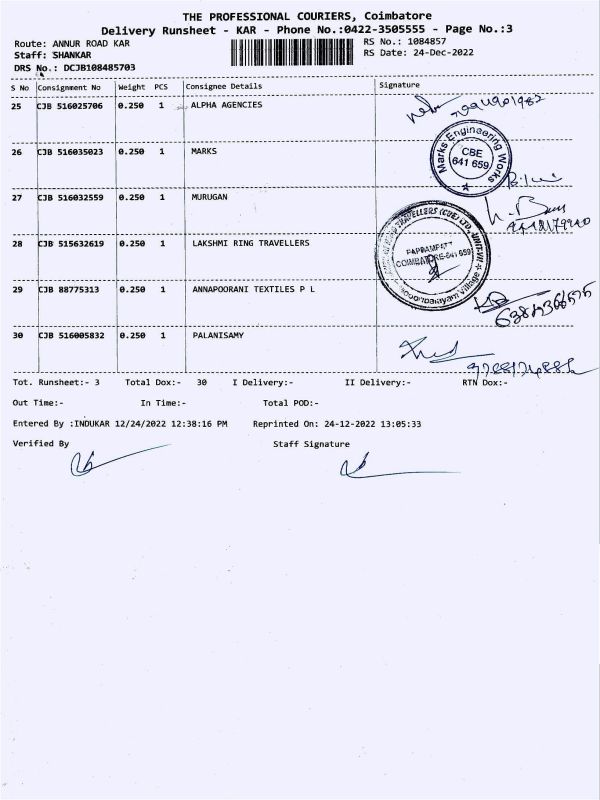 THE PROFESSIONAL COURIERS, Coimbatore
Delivery Runsheet - KAR - Phone No.:0422-3505555 - Page No.:3
Route: ANNUR ROAD KAR RS No.: 1084857
Staff: SHANKAR RS Date: 24-Dec-2022
DRS No.: DCJB108485703
S No Consignment No Weight PCS Consignee Details Signature
25 CJB 516025706 0.250 1 ALPHA AGENCIES
26 CJB 516035023 0.250 1 MARKS
Marks Engineering Works
CBE
641 659
27 CJB 516032559 0.250 1 MURUGAN
28 CJB 515632619 0.250 1 LAKSHMI RING TRAVELLERS
TRAVELLERS (CBE) LTD., UNIT-VII
COIMBATORE-641 659
29 CJB 88775313 0.250 1 ANNAPOORANI TEXTILES P L
30 CJB 516005832 0.250 1 PALANISAMY
Tot. Runsheet:- 3 Total Dox:- 30 I Delivery:- II Delivery:- RTN Dox:-
Out Time:- In Time:- Total POD:-
Entered By :INDUKAR 12/24/2022 12:38:16 PM Reprinted On: 24-12-2022 13:05:33
Verified By Staff Signature